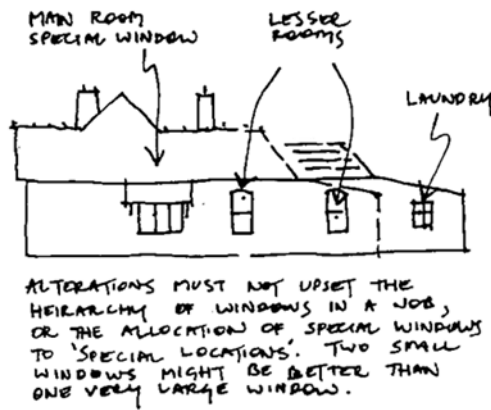 MAIN ROOM
SPECIAL WINDOW
LESSER
ROOMS
LAUNDRY
ALTERATIONS MUST NOT UPSET THE
HEIRARCHY OF WINDOWS IN A JOB,
OR THE ALLOCATION OF SPECIAL WINDOWS
TO 'SPECIAL LOCATIONS'. TWO SMALL
WINDOWS MIGHT BE BETTER THAN
ONE VERY LARGE WINDOW.